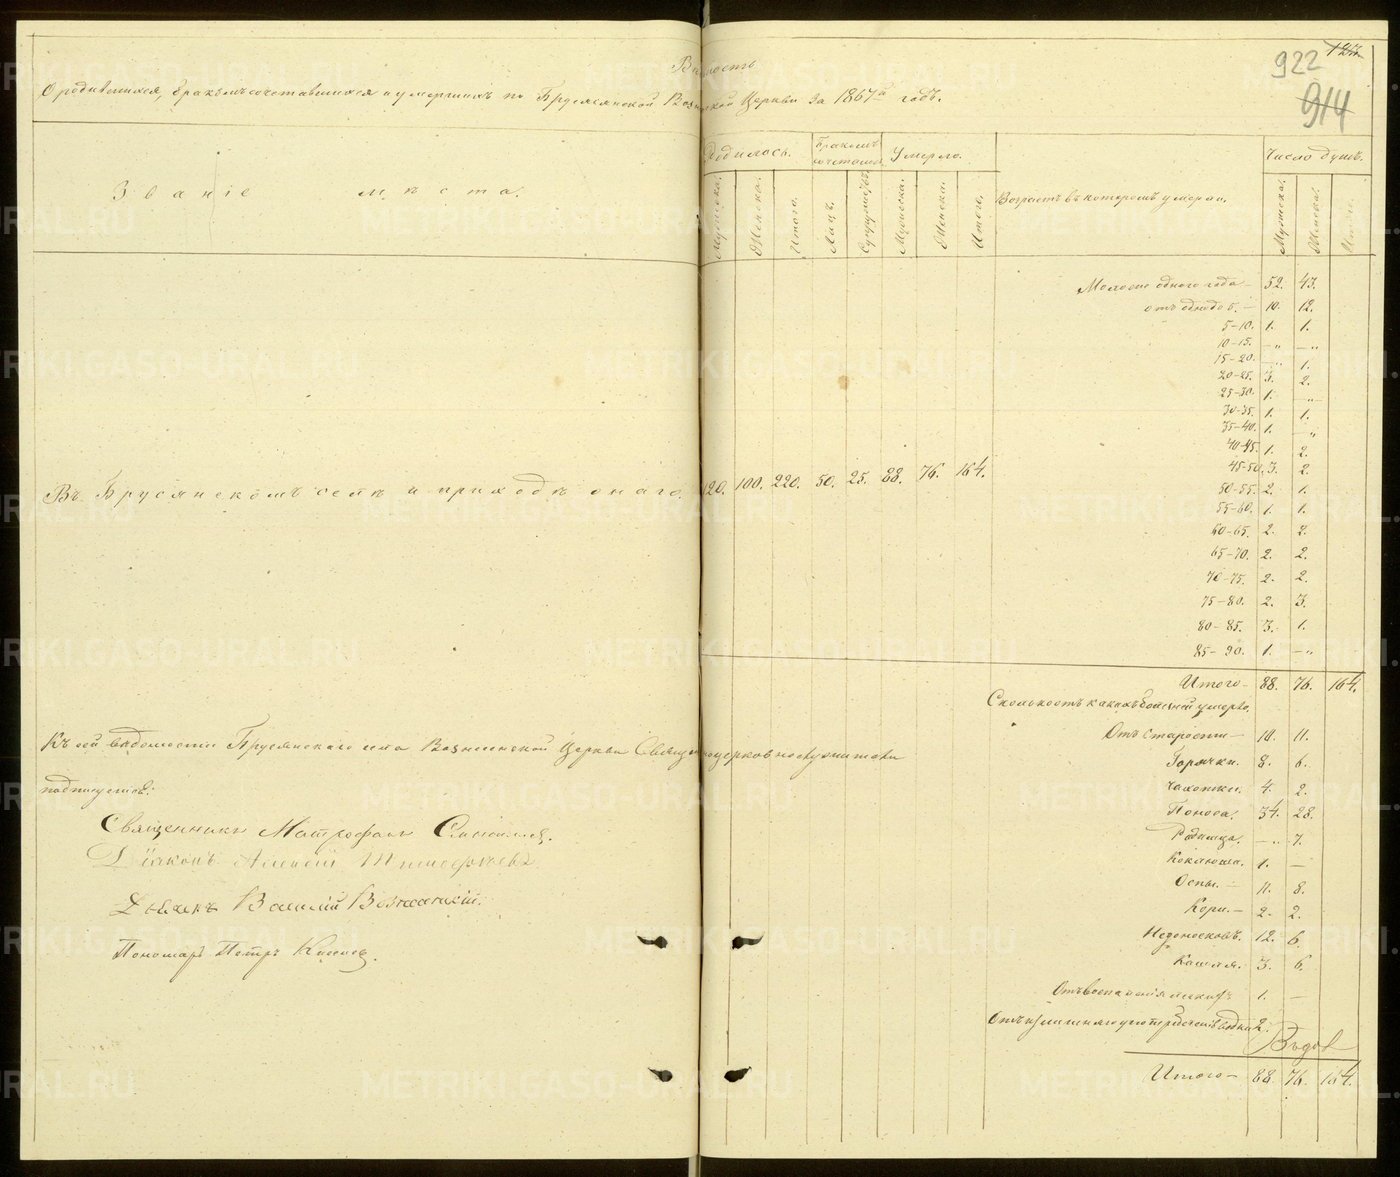 922
914
Ведомость
О родившихся, бракомъ сочетавшихся и умершихъ по Брусянской Вознесенской Церкви за 1867й годъ.
Званіе мѣста.
Родилось.
Бракомъ сочеталось
Умерло.
Возрастъ въ которомъ умерли.
Число душъ.
Мужеска.
Женска.
Итого.
Лицъ.
Супружествъ
Мужеска.
Женска.
Итого.
Мужеска.
Женска.
Итого.
Въ Брусянскомъ селѣ и приходѣ онаго.
120. 100. 220. 50. 25. 88. 76. 164.
Моложе одного года - 52. 43.
отъ одного до 5. - 10. 12.
5-10. 1. 1.
10-15. - „ - „
15-20. - „ 1.
20-25. 3. 2.
25-30. 1. - „
30-35. 1. 1.
35-40. 1. - „
40-45. 1. 2.
45-50. 3. 2.
50-55. 2. 1.
55-60. 1. 1.
60-65. 2. 2.
65-70. 2. 2.
70-75. 2. 2.
75-80. 2. 3.
80-85. 3. 1.
85-90. 1. - „
Итого - 88. 76. 164.
Сколько отъ какихъ болезней умерло.
Отъ Старости - 10. 11.
Горячки. 8. 6.
Чахотки. 4. 2.
Поноса. 34. 28.
Родимца. - „ 7.
Коклюша. 1. -
Оспы. - 11. 8.
Кори. - 2. 2.
Недоносковъ. 12. 6.
Кашля. 3. 6.
Отъ воспаленія 1. -
Отъ излишняго употребленія водки 2.
Итого - 88. 76. 164.
Къ сей ведомости Брусянскаго села Вознесенской Церкви Священноцерковнослужители
подписуемся:
Священникъ Митрофанъ
Діаконъ Алексій
Дьячекъ Василій
Пономарь Петръ
METRIKI.GASO-URAL.RU